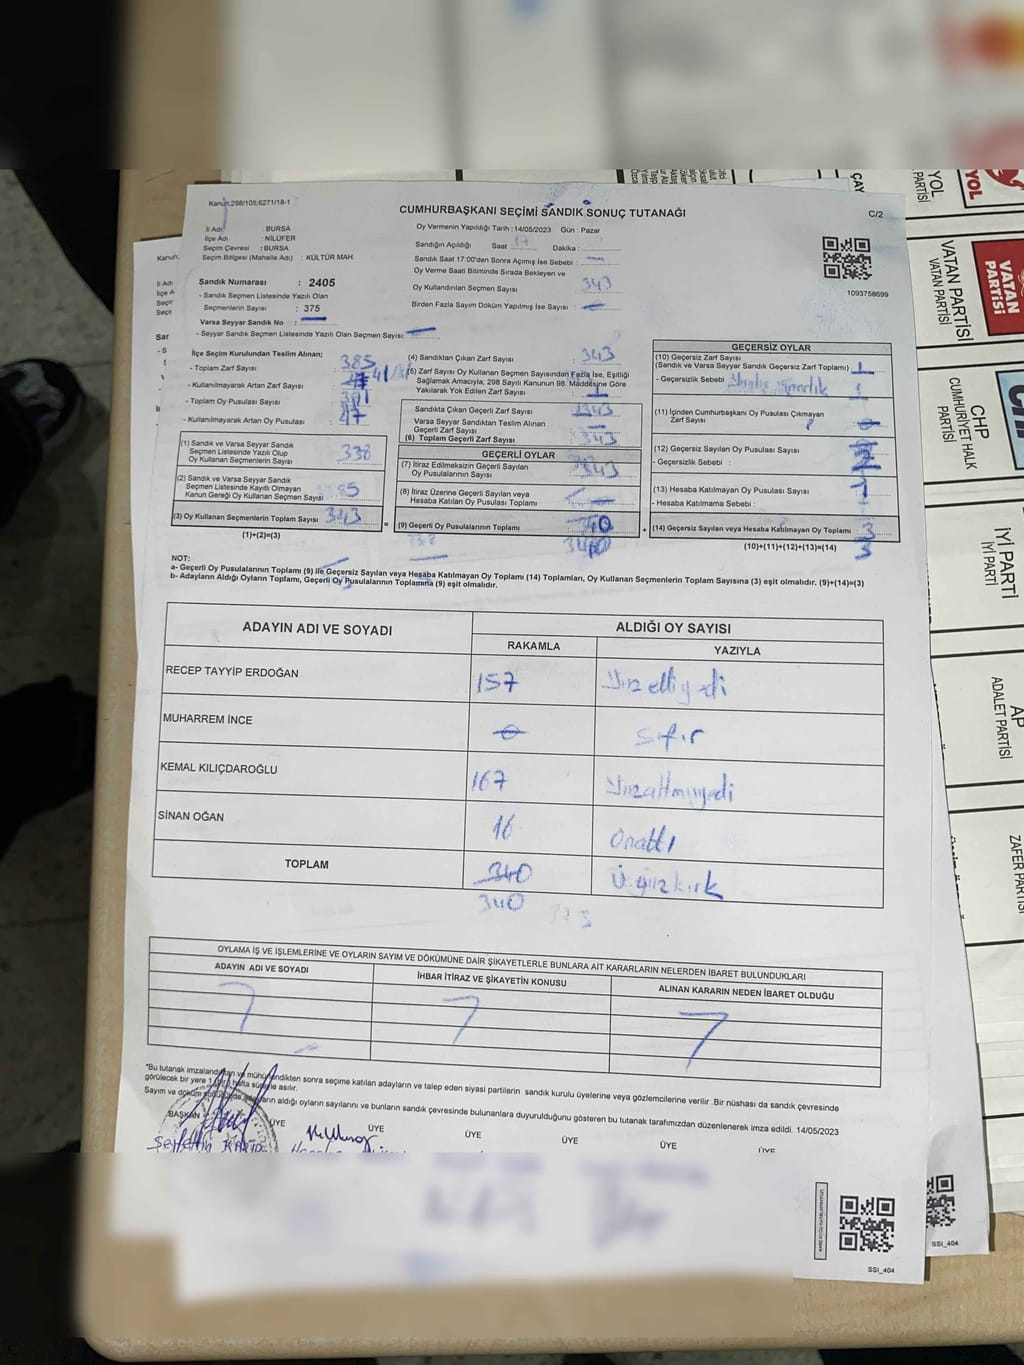 Kanun,298/105;6271/18-1
CUMHURBAŞKANI SEÇİMİ SANDIK SONUÇ TUTANAĞI
C/2
İl Adı : BURSA
İlçe Adı : NİLÜFER
Seçim Çevresi : BURSA
Seçim Bölgesi (Mahalle Adı) : KÜLTÜR MAH.
Oy Vermenin Yapıldığı Tarih : 14/05/2023 Gün : Pazar
Sandığın Açıldığı Saat Dakika :
Sandık Saat 17:00'den Sonra Açımış İse Sebebi :
Oy Verme Saati Bitiminde Sırada Bekleyen ve
Oy Kullandırılan Seçmen Sayısı : 343
Birden Fazla Sayım Döküm Yapılmış İse Sayısı :
1093758699
Sandık Numarası : 2405
- Sandık Seçmen Listesinde Yazılı Olan
Seçmenlerin Sayısı : 375
Varsa Seyyar Sandık No :
- Seyyar Sandık Seçmen Listesinde Yazılı Olan Seçmen Sayısı:
İlçe Seçim Kurulundan Teslim Alınan;
- Toplam Zarf Sayısı : 385
- Kullanılmayarak Artan Zarf Sayısı :
- Toplam Oy Pusulası Sayısı :
- Kullanılmayarak Artan Oy Pusulası : 47
(1) Sandık ve Varsa Seyyar Sandık
Seçmen Listesinde Yazılı Olup
Oy Kullanan Seçmenlerin Sayısı : 338
(2) Sandık ve Varsa Seyyar Sandık
Seçmen Listesinde Kaydı Olmayan
Kanun Gereği Oy Kullanan Seçmen Sayısı
(3) Oy Kullanan Seçmenlerin Toplam Sayısı : 343
(1)+(2)=(3)
(4) Sandıktan Çıkan Zarf Sayısı : 343
(5) Zarf Sayısı Oy Kullanan Seçmen Sayısından Fazla İse, Eşitliği
Sağlamak Amacıyla; 298 Sayılı Kanunun 98. Maddesine Göre
Yakılarak Yok Edilen Zarf Sayısı :
Sandıkta Çıkan Geçerli Zarf Sayısı : 343
Varsa Seyyar Sandıktan Teslim Alınan
Geçerli Zarf Sayısı :
(6) Toplam Geçerli Zarf Sayısı : 343
GEÇERLİ OYLAR
(7) İtiraz Edilmeksizin Geçerli Sayılan
Oy Pusulalarının Sayısı :
(8) İtiraz Üzerine Geçerli Sayılan veya
Hesaba Katılan Oy Pusulası Toplamı :
(9) Geçerli Oy Pusulalarının Toplamı : 340
GEÇERSİZ OYLAR
(10) Geçersiz Zarf Sayısı
(Sandık ve Varsa Seyyar Sandık Geçersiz Zarf Toplamı) :
- Geçersizlik Sebebi :
(11) İçinden Cumhurbaşkanı Oy Pusulası Çıkmayan
Zarf Sayısı :
(12) Geçersiz Sayılan Oy Pusulası Sayısı :
- Geçersizlik Sebebi :
(13) Hesaba Katılmayan Oy Pusulası Sayısı :
- Hesaba Katılmama Sebebi :
(14) Geçersiz Sayılan veya Hesaba Katılmayan Oy Toplamı : 3
(10)+(11)+(12)+(13)=(14)
NOT:
a- Geçerli Oy Pusulasının Toplamı (9) ile Geçersiz Sayılan veya Hesaba Katılmayan Oy Toplamı (14) Toplamları, Oy Kullanan Seçmenlerin Toplam Sayısına (3) eşit olmalıdır. (9)+(14)=(3)
b- Adayların Aldığı Oyların Toplamı, Geçerli Oy Pusulalarının Toplamına (9) eşit olmalıdır.
ADAYIN ADI VE SOYADI
ALDIĞI OY SAYISI
RAKAMLA YAZIYLA
RECEP TAYYİP ERDOĞAN 157 Yüz elli yedi
MUHARREM İNCE sıfır
KEMAL KILIÇDAROĞLU 167 Yüzaltmışyedi
SİNAN OĞAN 16 Onaltı
TOPLAM 340 Üçyüzkırk
340
OYLAMA İŞ VE İŞLEMLERİNE VE OYLARIN SAYIM VE DÖKÜMÜNE DAİR ŞİKAYETLERLE BUNLARA AİT KARARLARIN NELERDEN İBARET BULUNDUKLARI
ADAYIN ADI VE SOYADI İHBAR İTİRAZ VE ŞİKAYETİN KONUSU ALINAN KARARIN NEDEN İBARET OLDUĞU
"Bu tutanak imzalandıktan ve mühürlendikten sonra seçime katılan adayların ve talep eden siyasi partilerin sandık kurulu üyelerine veya gözlemcilerine verilir .Bir nüshası da sandık çevresinde
görülecek bir yere 1 (bir) hafta süreyle asılır.
Sayım ve döküm aldığı oyların sayılarını ve bunların sandık çevresinde bulunanlara duyurulduğunu gösteren bu tutanak tarafımızdan düzenlenerek imza edildi. 14/05/2023
BAŞKAN ÜYE ÜYE ÜYE ÜYE ÜYE ÜYE
SSI_404
SSI_404
YOL
PARTİSİ
YOL
VATAN PARTİSİ
VATAN PARTİSİ
VATAN
PARTİSİ
CHP
CUMHURİYET HALK
PARTİSİ
İYİ PARTİ
İYİ PARTİ
AP
ADALET PARTİSİ
ZAFER PARTİSİ